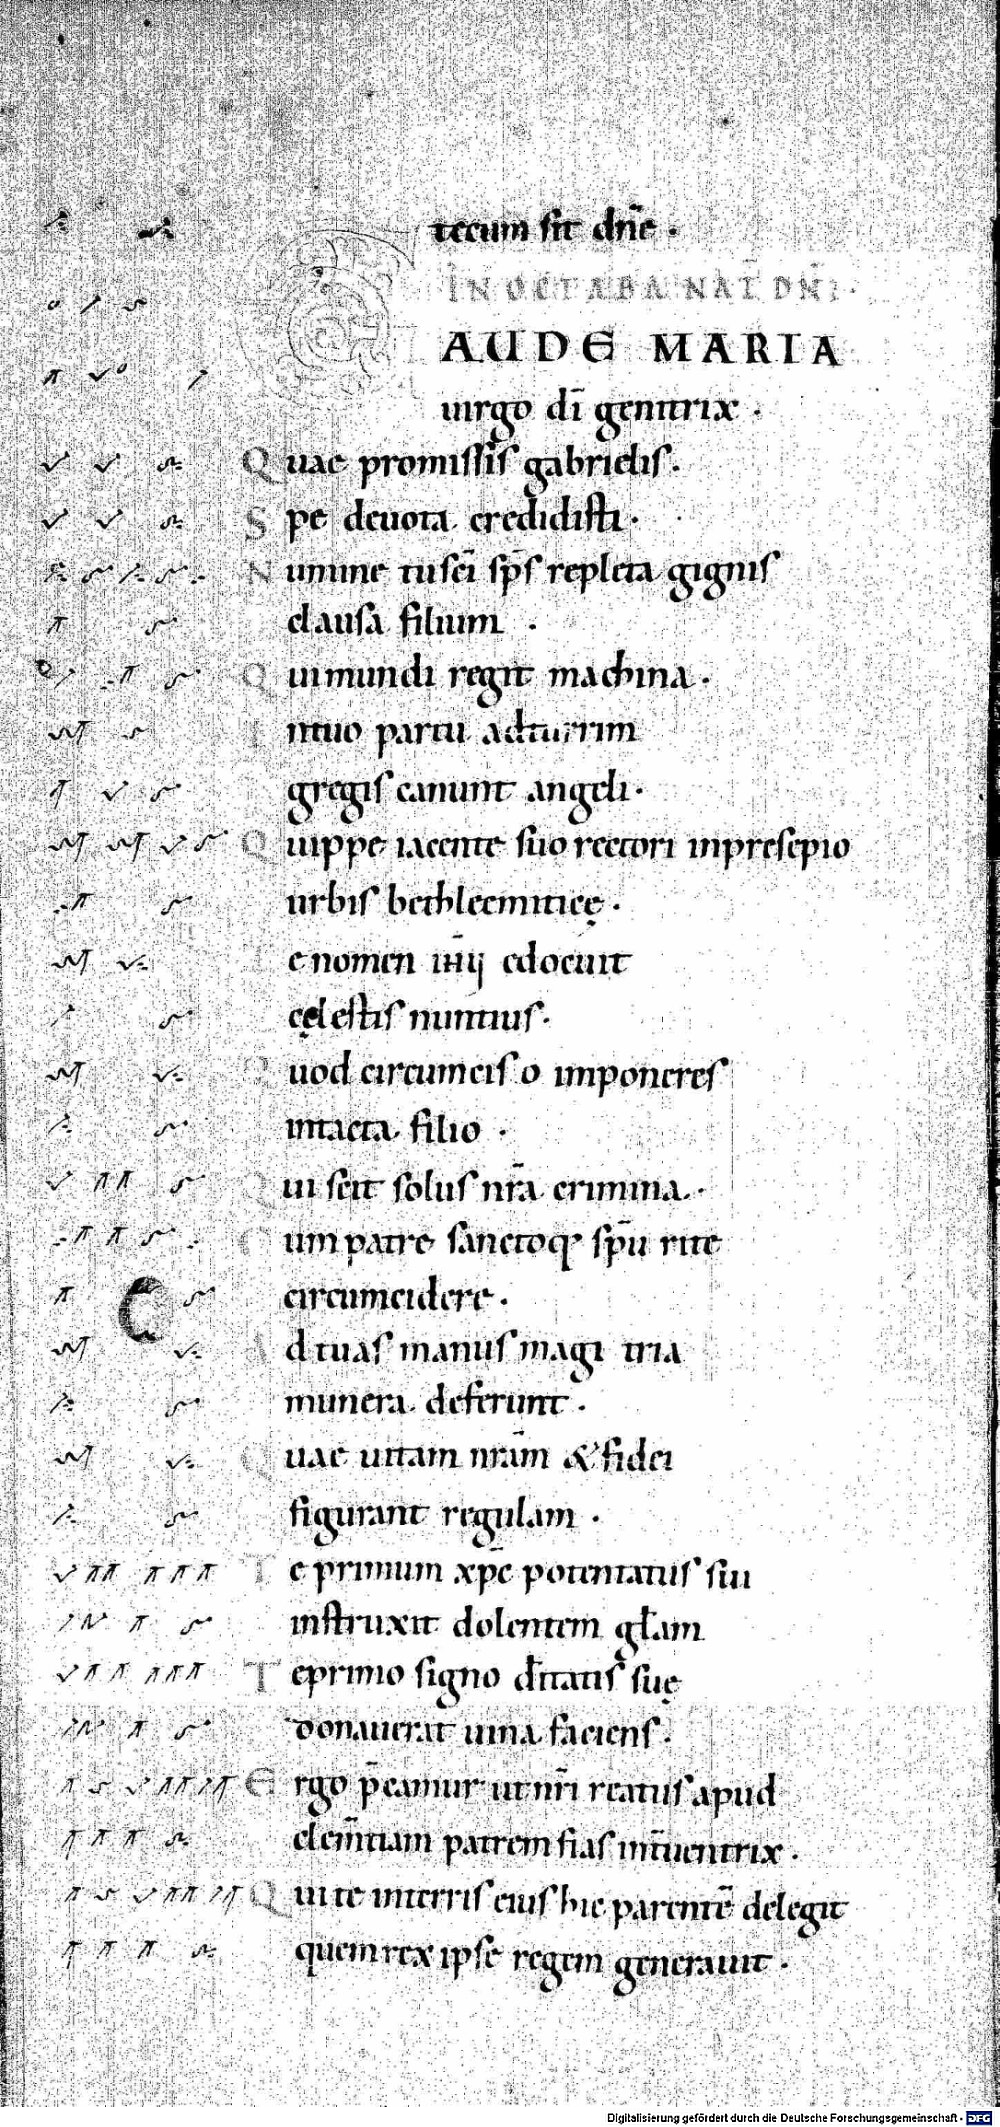 tecum sit dñe .
IN OCTABA NAT̄ DN̄I .
GAUDE MARIA
uirgo dī genitrix .
Quae promissis gabrielis .
Spe deuota credidisti .
Numine tu sc̄i sp̄s repleta gignis
clausa filium .
Qui mundi regit machina .
Intuo partu ad turrim
gregis canunt angeli .
Quippe iacente suo rectori inpresepio
urbis bethleemiticę .
e nomen edocuit
cęlestis nuntius .
Quod circumciso imponeres
intacta filio .
Qui scit solus nr̄a crimina .
Cum patre sanctoq; sp̄u rite
circumcidere .
Ad tuas manus magi tria
munera deferunt .
Quae uitam nrām & fidei
figurant regulam .
Te primum xp̄c potentatus sui
instruxit dolentem gl̄am
Te primo signo d̄itatis suę
donauerat uina faciens .
Ergo p̄camur ut nr̄i reatus apud
clem̄tiam patrem fias int̄uentrix .
Qui te interris eius hic parentē delegit
quem rex ipse regem generauit .
Digitalisierung gefördert durch die Deutsche Forschungsgemeinschaft - DFG